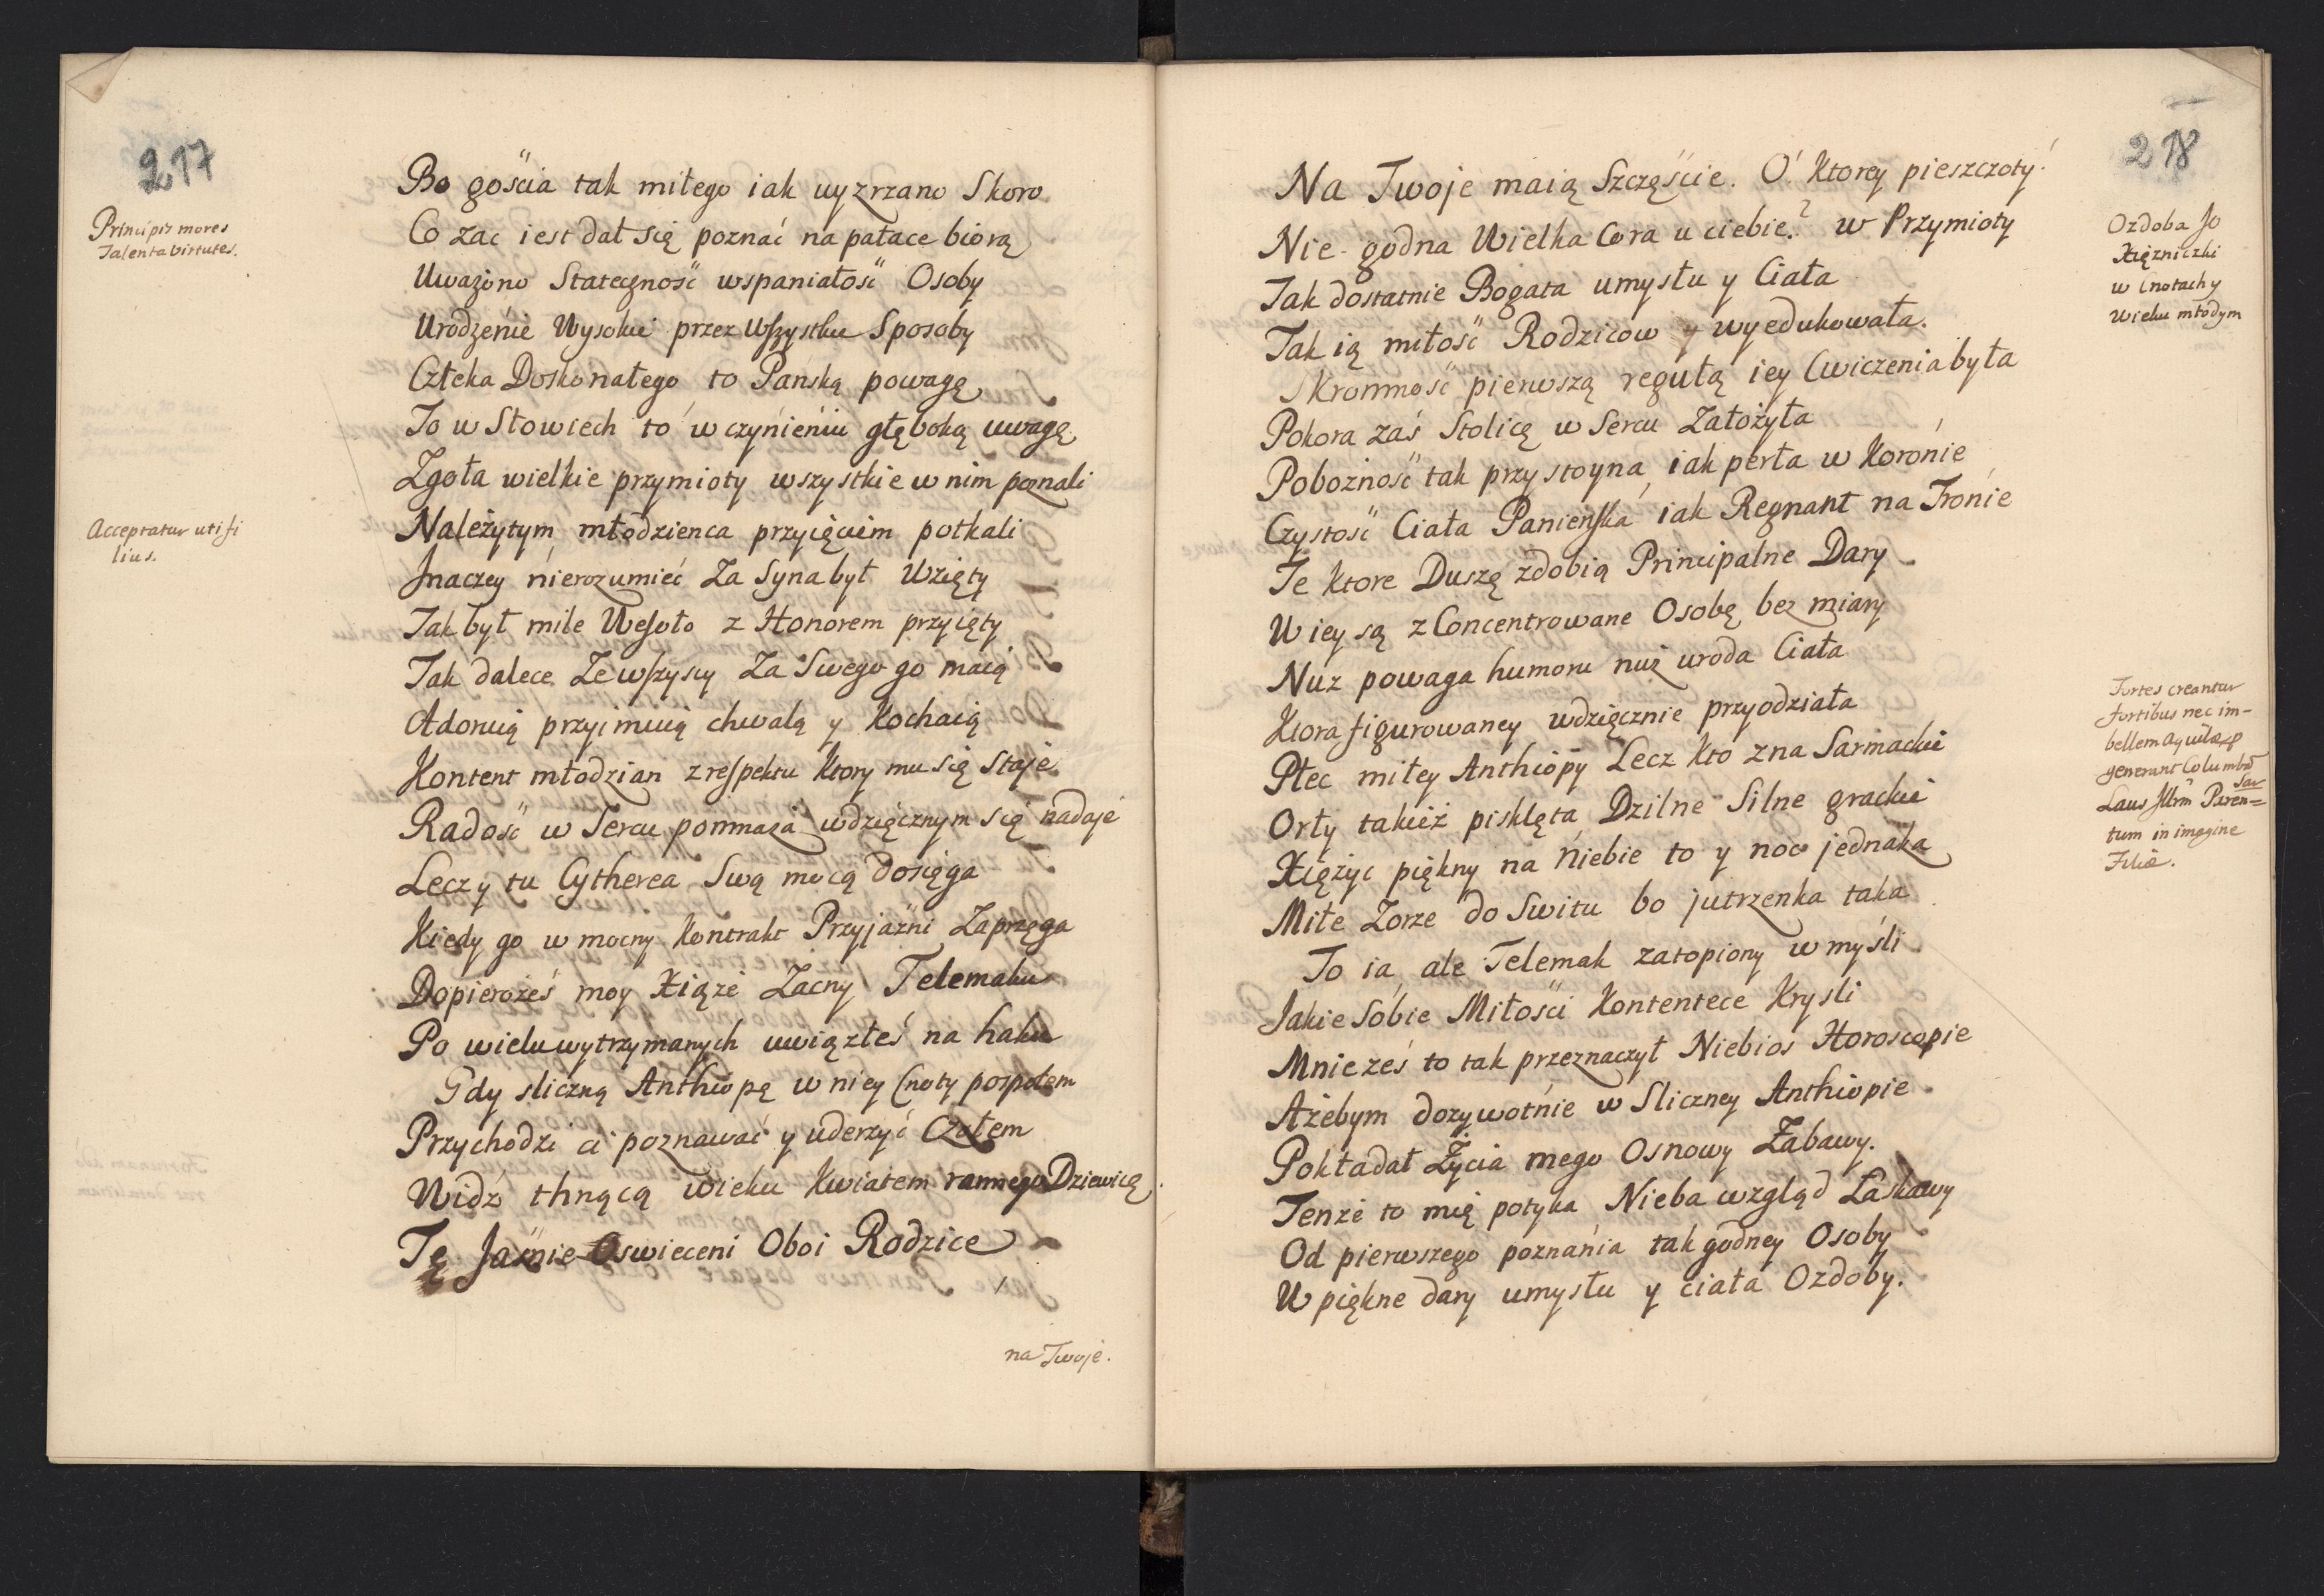 217
Principis mores
Talenta virtutes.
Bo gościa tak miłego iak uyzrzano Skoro
Co zac iest dał się poznać na pałace biorą
Uważono Stateczność wspaniałość Osoby
Urodzenie Wysokie przez Wszystkie Sposoby
Człeka Doskonałego to Pańską powagę
To w Słowiech to w czynieniu głęboką uwagę
Zgoła wielkie przymioty wszystkie w nim poznali
Acceptatur uti fi
lius.
Należytym młodzienca przyięciem potkali
Jnaczey nierozumieć Za Syna był Wzięty
Tak był mile Wesoło z Honorem przyięty
Tak dalece Ze wszyscy Za Swego go maią
Adoruią przyimuią chwalą y Kochaią
Kontent młodzian z respektu Ktory mu się Staje
Radość w Sercu pomnaża wdzięcznym się nadaje
Lecz y tu Cytherea Swą mocą dosięga
Kiedy go w mocny Kontrakt Przyjaźni Zaprzęga
Dopierożeś moy Xiąże Zacny Telemaku
Po wielu wytrzymanych uwiązłeś na haku
Gdy sliczną Anthiopę w niey Cnoty pospołem
Przychodzi ci poznawać y uderzyć Czołem
Widź thnącą wieku Kwiatem rannego Dziewicę
Tę Jaśnie Oswieceni Oboi Rodzice
na Twoje.
218
Na Twoje maią Szczęście. O! Ktorey pieszczoty!
Nie godna Wielka Cora u ciebie? w Przymioty
Ozdoba Jo
Xiężniczki
w Cnotach y
Wieku młodym
Tak dostatnie Bogata umysłu y Ciała
Tak ią miłość Rodzicow y wyedukowała.
Skromność pierwszą regułą iey Cwiczenia była
Pokora zaś Stolicę w Sercu Założyła
Pobożność tak przystoyna iak perła w Koronie
Czystość Ciała Panieńska iak Regnant na Tronie
Te Ktore Duszę zdobią Principalne Dary
W iey są z Concentrowane Osobę bez miary
Nuż powaga humoru nuż uroda Ciała
Ktora figurowaney wdzięcznie przyodziała
Płec miłey Anthiopy Lecz Kto zna Sarmackie
Orły takież pisklęta Dzilne Silne grackie
Xiężyc piękny na niebie to y noc jednaka
Miłe Zorze do Switu bo jutrzenka taka
Fortes creantur
fortibus nec im-
bellem aquilæ
generant Columbã
Laus Jllrm Paren=
tum in imagine
Filiæ.
To ia ale Telemak zatopiony w myśli
Jakie Sobie Miłości Kontentece Krysli
Mnie żeś to tak przeznaczył Niebios Horoscopie
Ażebym dożywotnie w Sliczney Anthiopie
Pokładał Życia mego Osnowy Zabawy.
Tenże to mię potyka Nieba wzgląd Łaskawy
Od pierwszego poznania tak godney Osoby
W piękne dary umysłu y ciała Ozdoby.